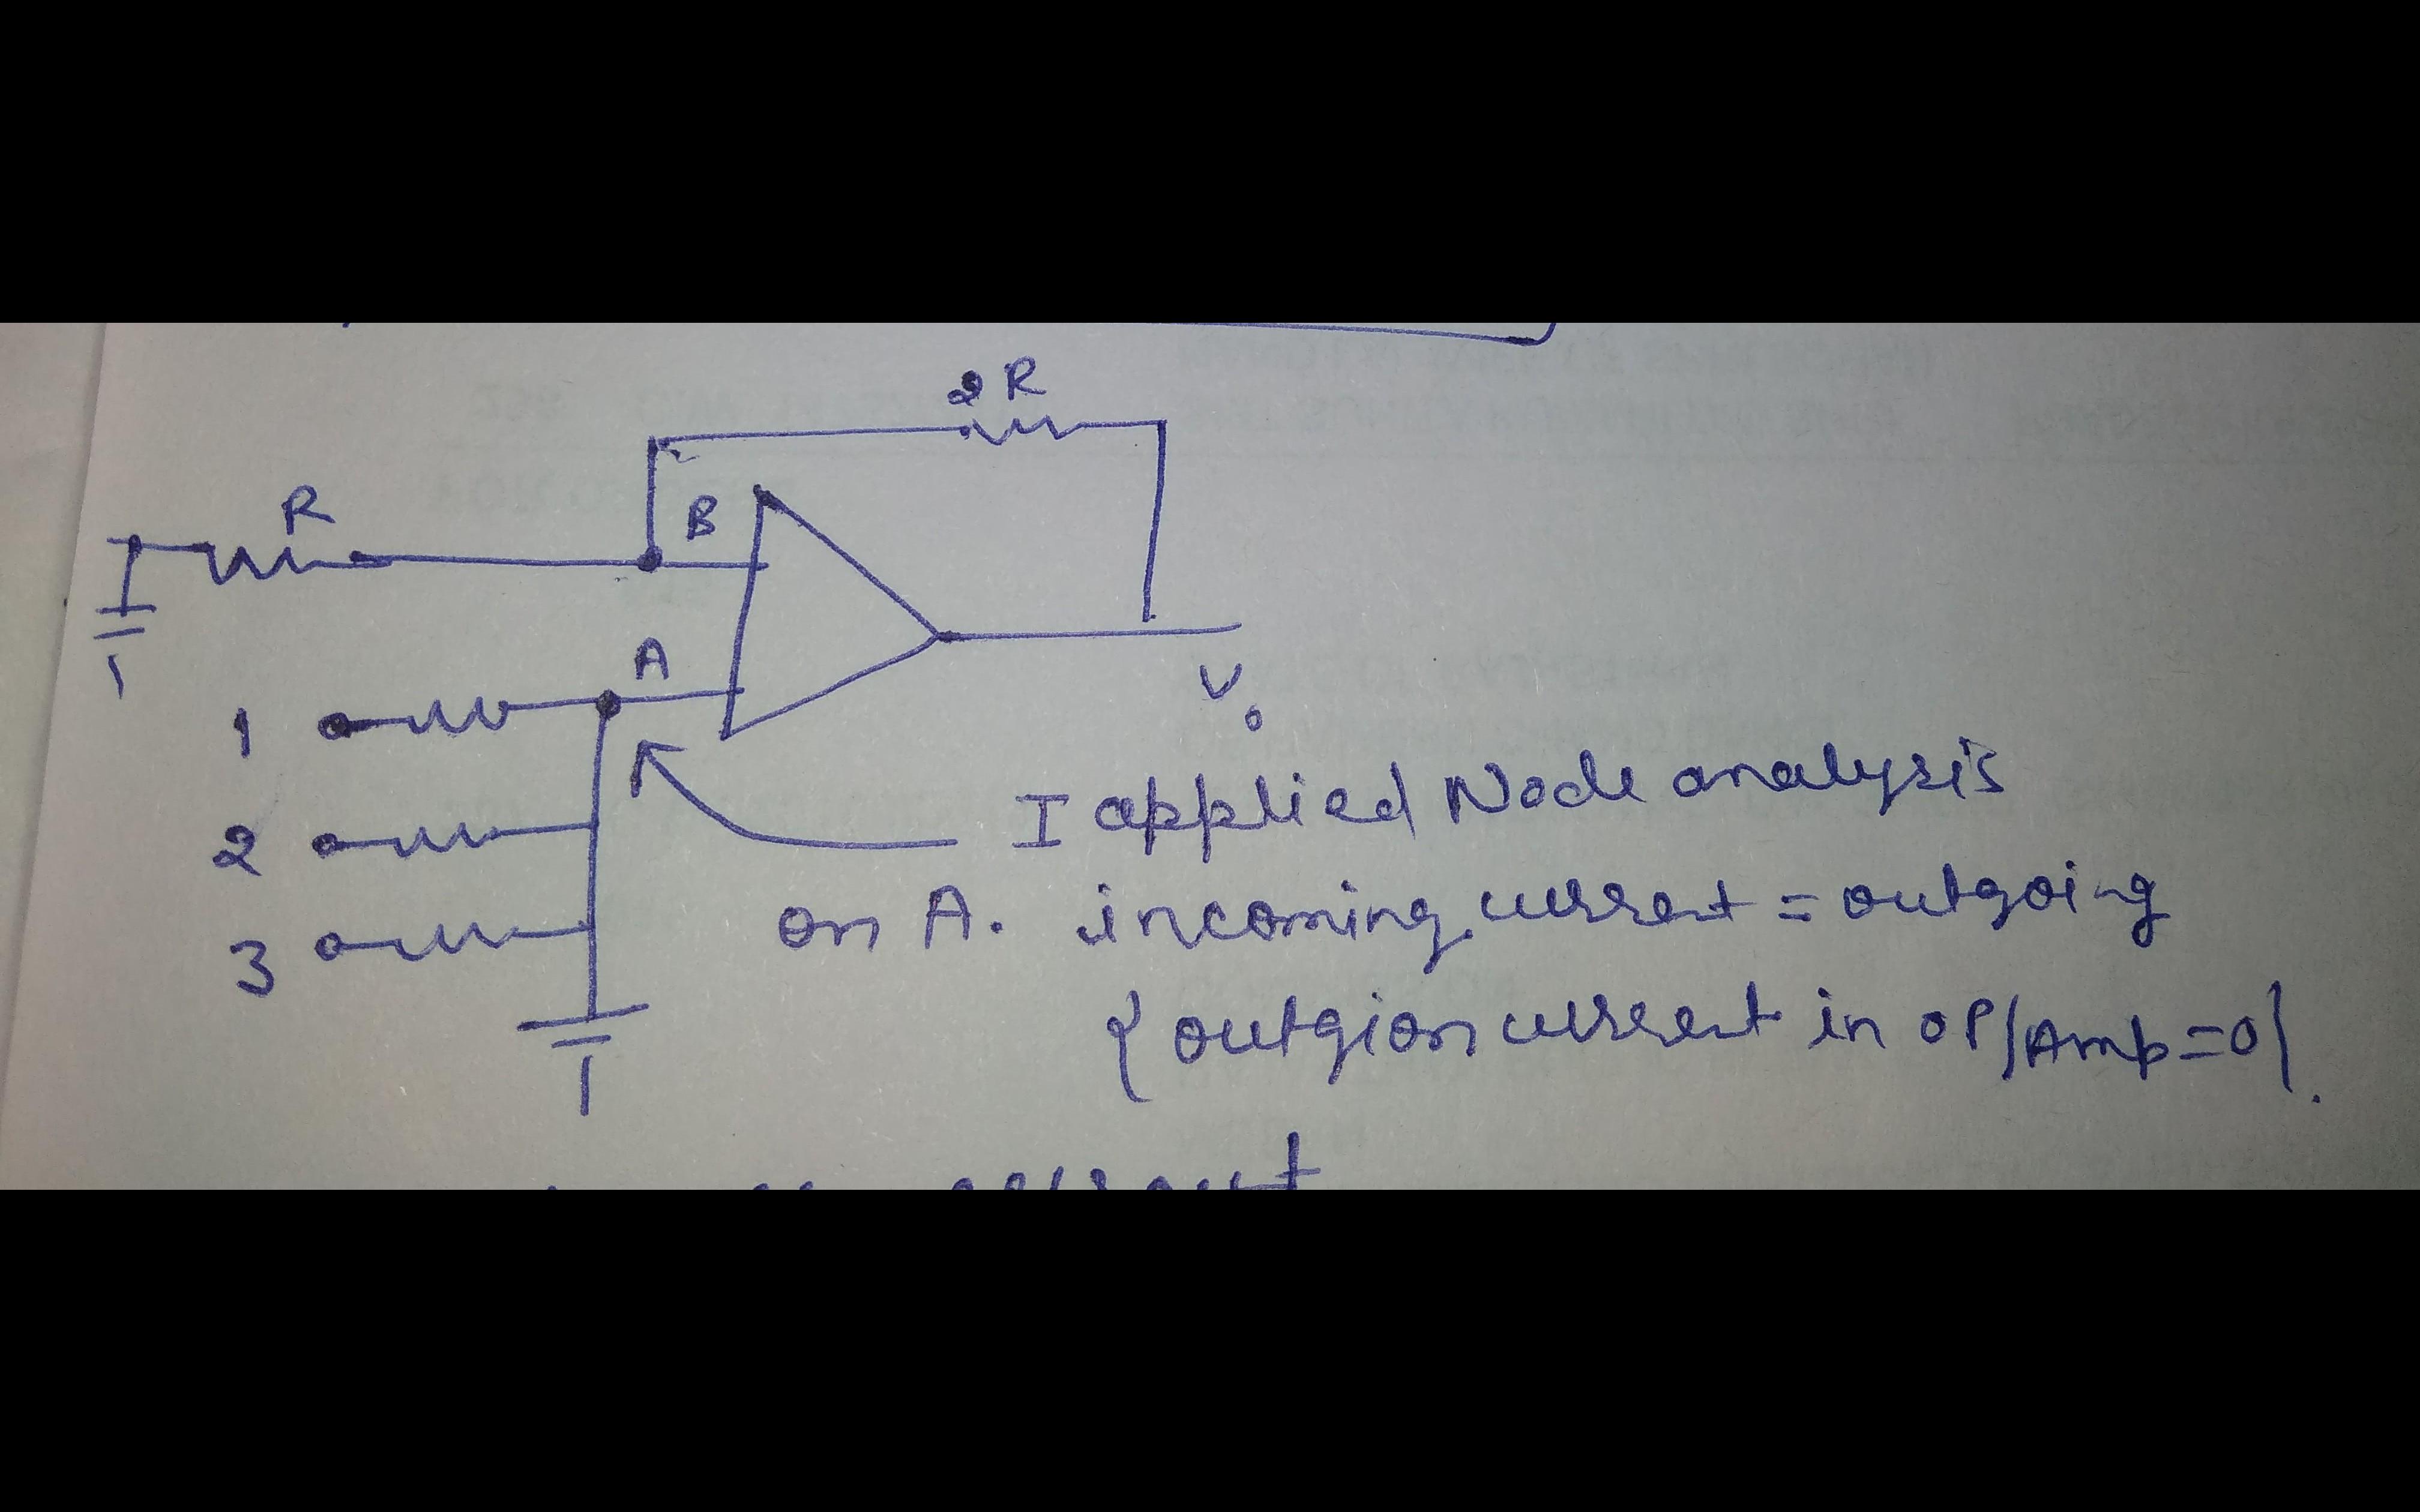 2R
R
B
A
1
V₀
2
3
I applied Node analysis
on A. incoming current = outgoing
{outgion current in OP/Amp=0}.
current